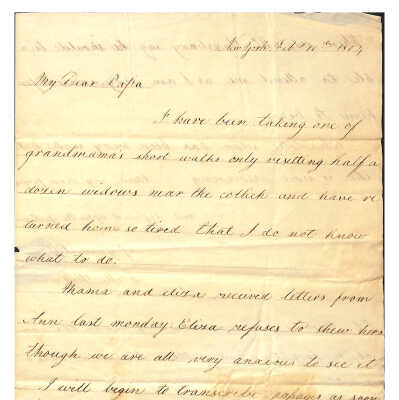 New York Feb
My Dear Papa
I have been taking one of
grandmamas short walks only visiting half a
dozen widows near the and have re
turned home so tired that I do not know
what to do.
Mama and eliza received letters from
Ann last monday Eliza refuses to shew hers
though we are all very anxious to see it
I will begin to transcribe as soon